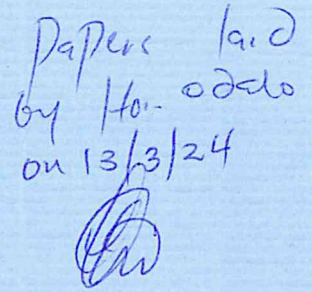 Papers laid
by Hon. Odalo
on 13/3/24